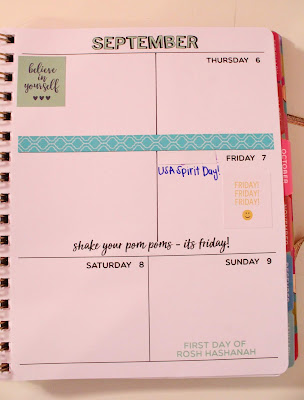 SEPTEMBER
believe
in
yourself
THURSDAY 6
OCTOBER
FRIDAY 7
USA Spirit Day!
FRIDAY!
FRIDAY!
FRIDAY!
shake your pom poms - its friday!
SATURDAY 8
SUNDAY 9
FIRST DAY OF
ROSH HASHANAH